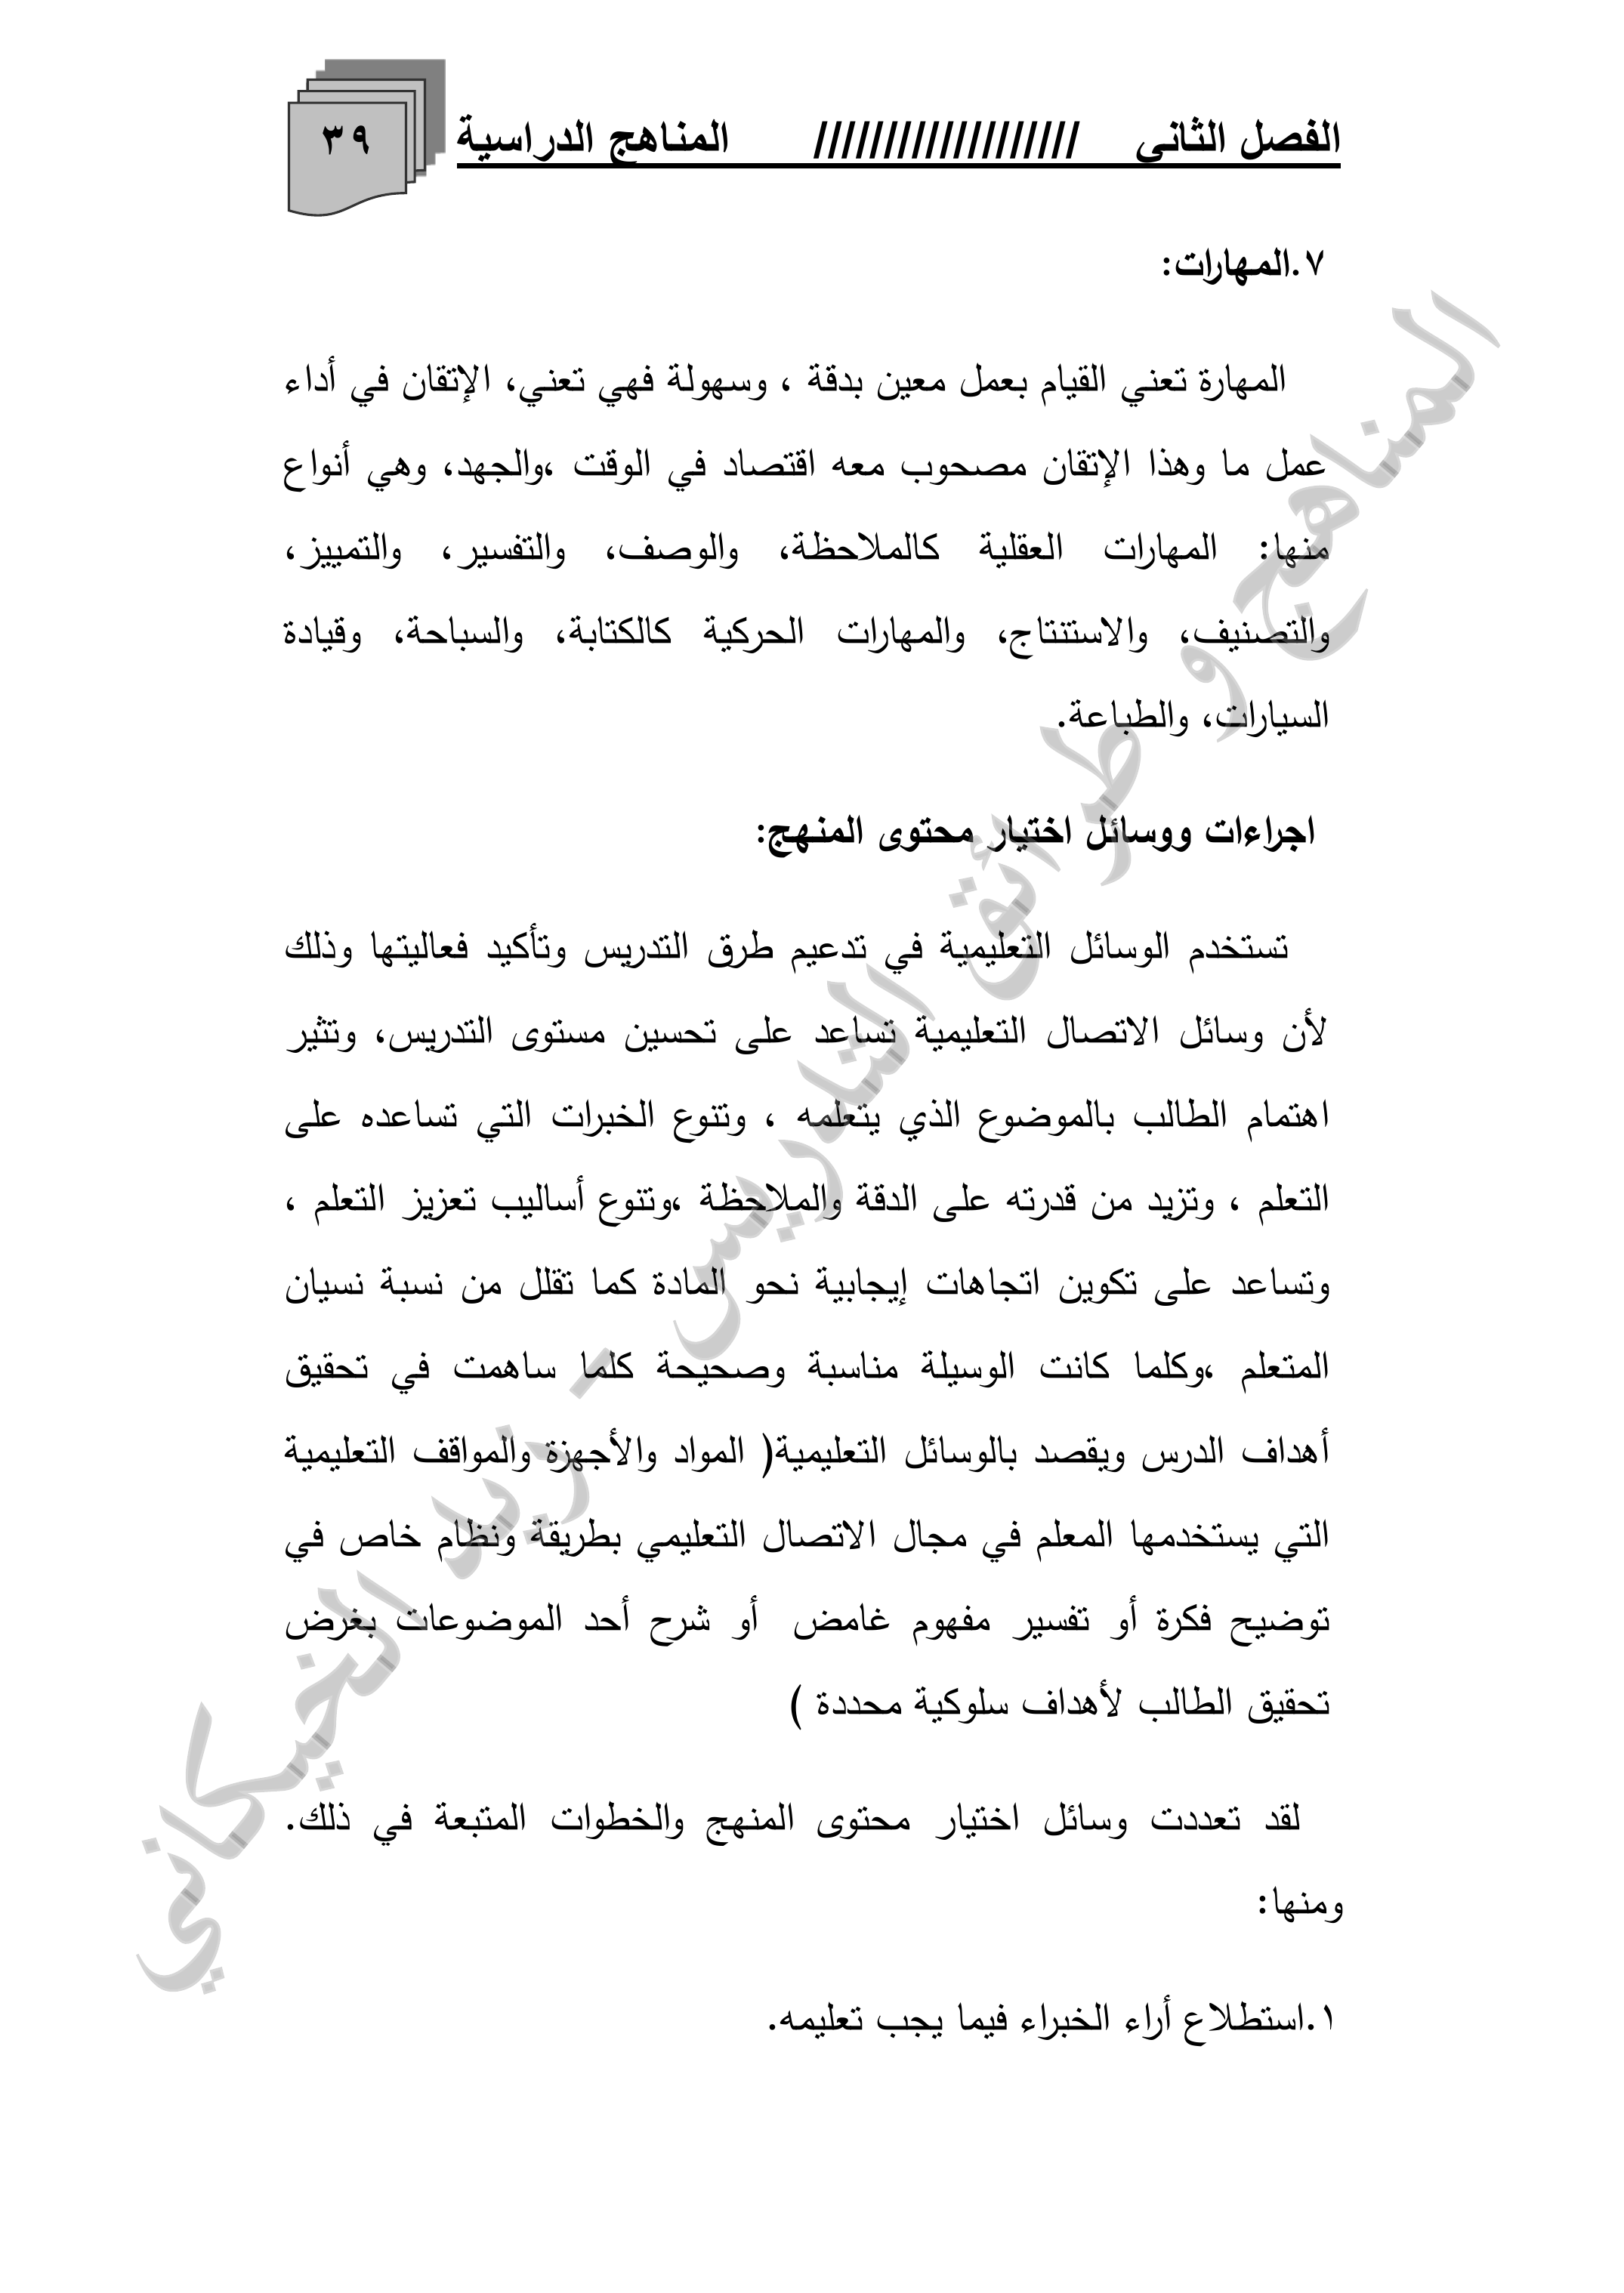 الفصل الثاني /////////////////// المناهج الدراسية ٣٩
٧.المهارات:
المهارة تعني القيام بعمل معين بدقة ، وسهولة فهي تعني، الإتقان في أداء
عمل ما وهذا الإتقان مصحوب معه اقتصاد في الوقت ،والجهد، وهي أنواع
منها: المهارات العقلية كالملاحظة، والوصف، والتفسير، والتمييز،
والتصنيف، والاستنتاج، والمهارات الحركية كالكتابة، والسباحة، وقيادة
السيارات، والطباعة.
اجراءات ووسائل اختيار محتوى المنهج:
تستخدم الوسائل التعليمية في تدعيم طرق التدريس وتأكيد فعاليتها وذلك
لأن وسائل الاتصال التعليمية تساعد على تحسين مستوى التدريس، وتثير
اهتمام الطالب بالموضوع الذي يتعلمه ، وتنوع الخبرات التي تساعده على
التعلم ، وتزيد من قدرته على الدقة والملاحظة ،وتنوع أساليب تعزيز التعلم ،
وتساعد على تكوين اتجاهات إيجابية نحو المادة كما تقلل من نسبة نسيان
المتعلم ،وكلما كانت الوسيلة مناسبة وصحيحة كلما ساهمت في تحقيق
أهداف الدرس ويقصد بالوسائل التعليمية( المواد والأجهزة والمواقف التعليمية
التي يستخدمها المعلم في مجال الاتصال التعليمي بطريقة ونظام خاص في
توضيح فكرة أو تفسير مفهوم غامض أو شرح أحد الموضوعات بغرض
تحقيق الطالب لأهداف سلوكية محددة )
لقد تعددت وسائل اختيار محتوى المنهج والخطوات المتبعة في ذلك.
ومنها:
١.استطلاع أراء الخبراء فيما يجب تعليمه.
المناهج و طرائق التدريس - زيد الخيكاني